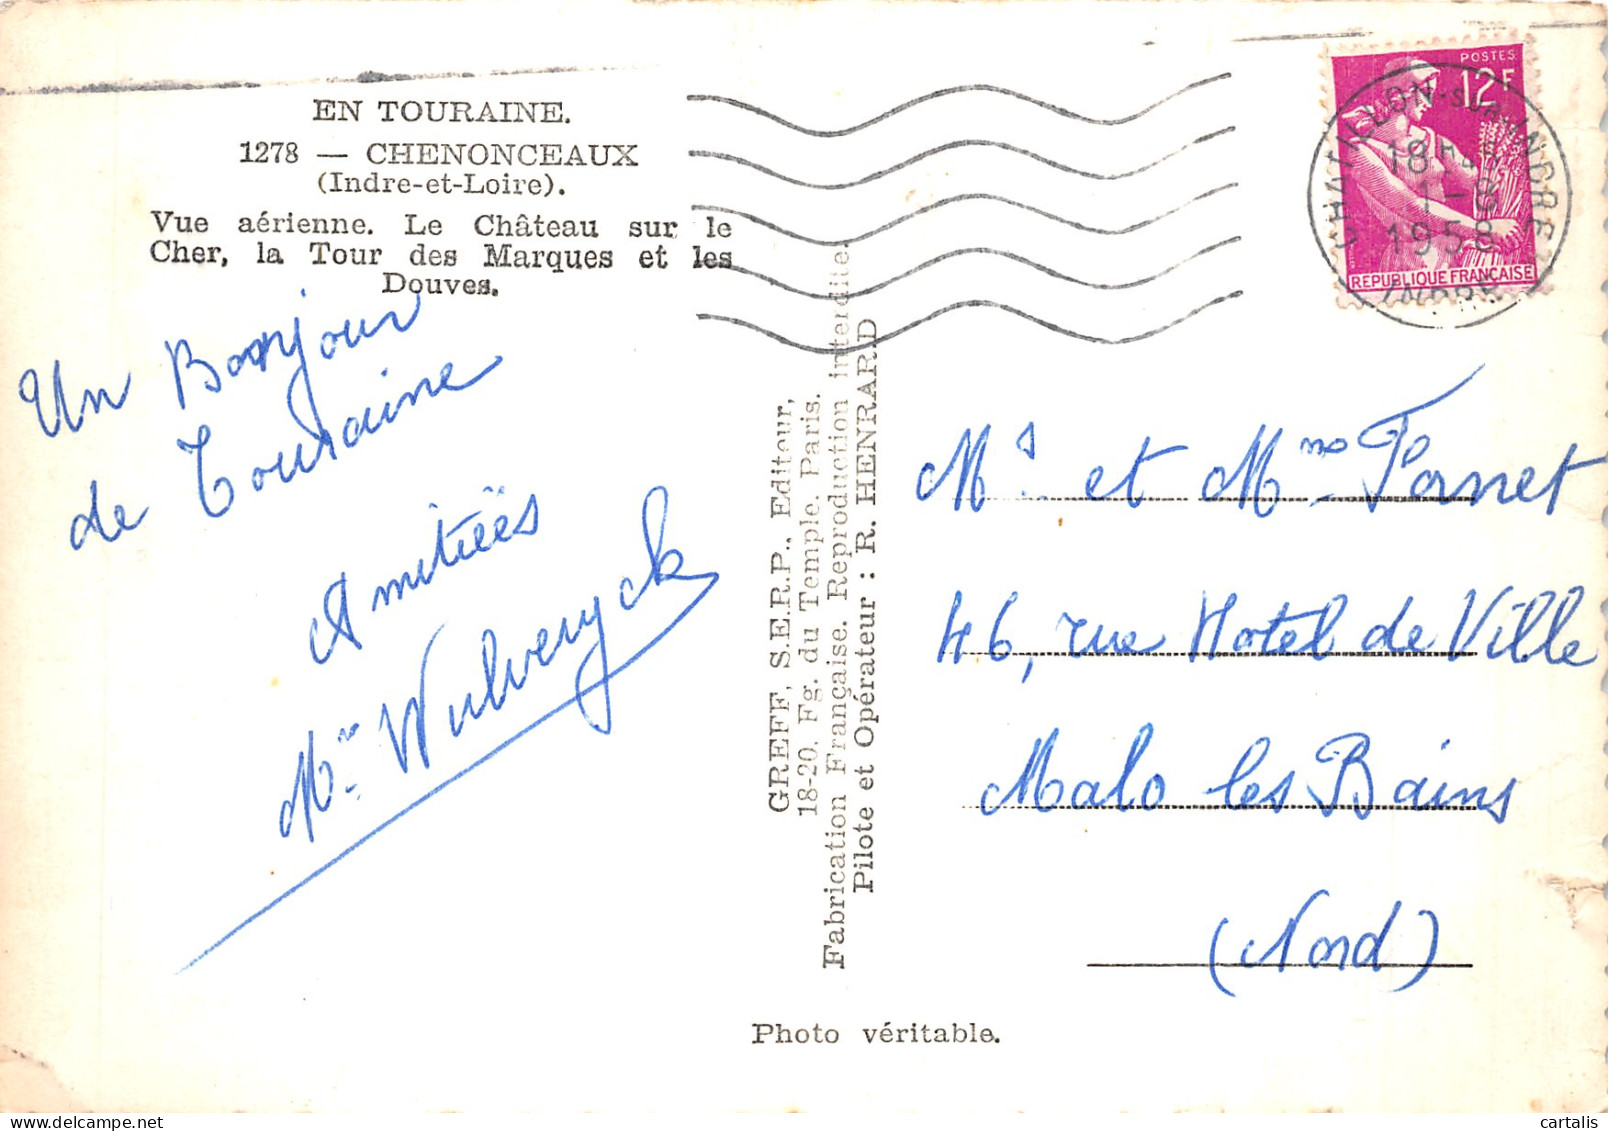 EN TOURAINE.
1278 — CHENONCEAUX
(Indre-et-Loire).
Vue aérienne. Le Château sur le
Cher, la Tour des Marques et les
Douves.
Un Bonjour
de Touraine
Amitiëës
Mr Wulveryck
GREFF, S.E.R.P., Editeur,
18-20, Fg. du Temple. Paris.
Fabrication Française. Reproduction interdite.
Pilote et Opérateur : R. HENRARD
Photo véritable.
POSTES
12F
REPUBLIQUE FRANÇAISE
CHATILLON-SUR-INDRE
18H
1-8
1958
INDRE
Mr. et Mme Fanet
46, rue Hotel de Ville
Malo les Bains
(Nord)
cartalis
www.delcampe.net